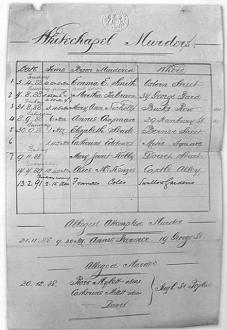 Whitechapel Murders.
Date Time Person Murdered Where
1 3.4.88 Emma E Smith Osborn Street
2 7.8.88 Martha Tabram 37 George Yard
3 31.8.88 Mary Ann Nicholls Bucks Row
4 8.9.88 Annie Chapman 29 Hanbury St
5 30.9.88 Elizabeth Stride Berner Street
6 Catherine Eddowes Mitre Square
7 9.11.88 Mary Jane Kelly Dorset Street
Alice McKenzie Castle Alley
13.2.91 Frances Coles Swallow Gardens
Alleged Attempted Murder
21.11.88 Annie Farmer 19 George St
Alleged Murder
20.12.88 Rose Mylett alias
Catherine High St Poplar
Davis